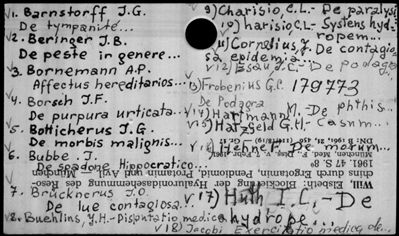 1. Barnstorff J.G.
De tympanite...
2. Beringer J.B.
De peste in genere...
3. Bornemann A.P.
Affectus hereditarios...
4. Borsch J.F.
De purpura urticata...
5. Botticherus J.G.
De morbis malignis...
6. Bubbe J.
De spadone Hippocratico...
7. Brucknerus J.O.
De lue contagiosa.
8. Buehlins, J.H.- Disputatio medica
9) Charisio, C.L.- De paralysi
10) harisio C.L.- Systens hyd-
ropem...
11) Cornelius, J. De contagio-
sa epidemia...
12) Esau, J.C.- De podag
13) Frobenius G.C. 179773
De Podagra
14) Hartmann M. De phthis...
15) Hatzfeld G.H.- Casum...
De motum...
Will, Eisbein: Blockierung der Hyaluronidasehemmung des Rese-
rpins durch Ergotamin, Pendiomid, Protamin und Avil. - München
1961. 47 S. 8°
München, Med. F., Diss.
V. 17) Huth I.C.,- De
hydrope...
V 18) Jacobi Exercitatio medica de...